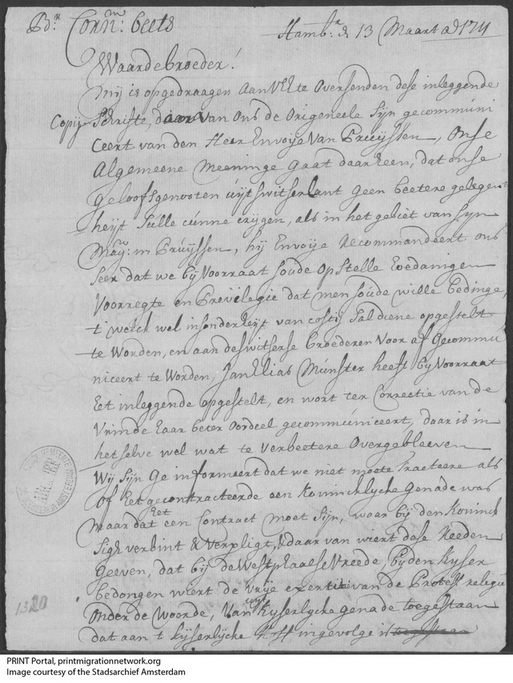 Br Cornm: beets
Hambr. d. 13 Maart ao 1711
Waarde broeder!
Mij is opgedraagen aan VE te oversenden dese inleggende
Copij Schrifte, daar van ons de origeneele sijn gecommuni
ceert van den Heer Envoije van Pruijssen, onse
algemeene meeninge gaat daar heen, dat onse
geloofsgenooten uijt switserlant geen beetere gelegent
heijt sulle cunne crijgen, als in het gebiet van sijn
Maij: in Pruijssen, hij Envoije recommandeert ons
seer dat we bij voorraat soude opstelle hoedanigen
voorregte en Previlegie dat men soude wille bedinge,
t welck wel insonderheijt van costij sal diene opgestelt
te worden, en aan de switserse broederen voor af gecommu
niceert te worden, Jan Elias Münster heeft bij voorraat
het inleggende opgestelt, en wort ter correctie van de
vrinde haar beter oordeel gecommuniceert, daar is in
het selve wel wat te verbeetere overgebleeven
Wij sijn geinformeert dat we niet moete tracteere als
of het gecontracteerde een Koninckelycke genade was
maar dat het een contract moet sijn, waar bij den Koninck
sigh verbint & verpligt, & daar van wiert dese reeden
geeven, dat bij de Westphaalse Vreede, bij den Kyser
bedongen wiert de vrije exertitie van de Protest: religie
onder de woorde van uyt Kyserlycke genade toegestaan
dat aan t kijserlijcke Hoff ingevolge is
1320
PRINT Portal, printmigrationnetwork.org
Image courtesy of the Stadsarchief Amsterdam